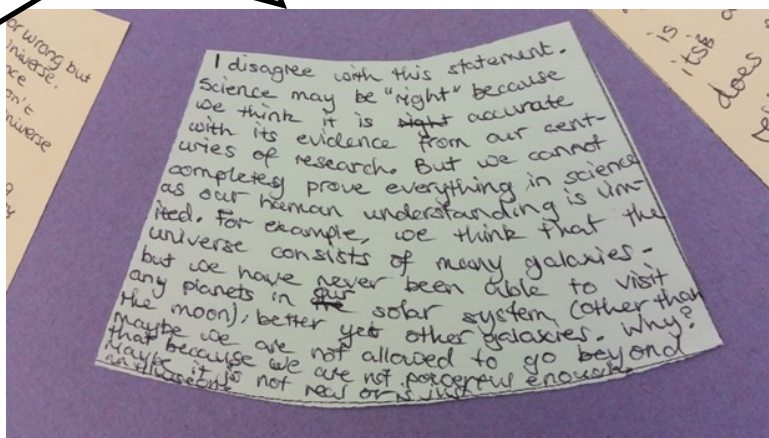 or wrong but
universe.
nce
on't
universe
I disagree with this statement.
Science may be "right" because
we think it is right accurate
with its evidence from our cent-
uries of research. But we cannot
completely prove everything in science
as our human understanding is lim-
ited. For example, we think that the
universe consists of many galaxies -
but we have never been able to visit
any planets in our solar system (other than
the moon), better yet other galaxies. Why?
Maybe we are not allowed to go beyond
that because we are not powerful enough.
Maybe it is not real or is just
is
its
does